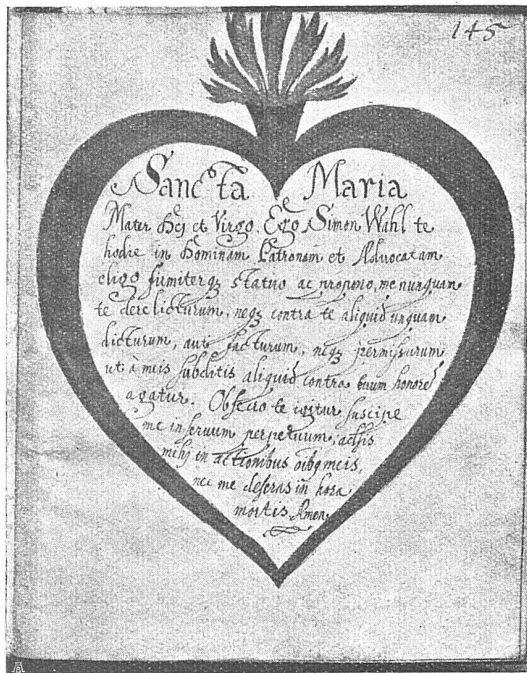 145
Sancta Maria
Mater Dej et Virgo, Ego Simon Wahl te
hodie in Dominam Patronam et Advocatam
eligo firmiterq; statuo ac propono, me nunquam
te derelicturum, neq; contra te aliquid unquam
dicturum, aut facturum, neq; permissurum
ut à meis subditis aliquid contra tuum honorẽ
agatur. Obsecro te igitur suscipe
me in servum perpetuum, adsis
mihj in actionibus oibq meis,
nec me deseras in hora
mortis Amen